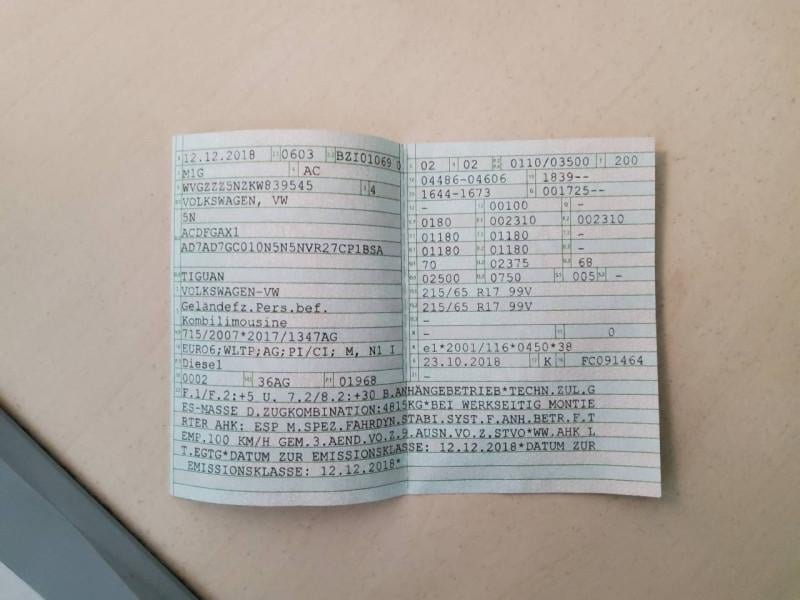 12.12.2018 0603 BZI01069 0
M1G AC
WVGZZZ5NZKW839545 4
VOLKSWAGEN, VW
5N
ACDFGAX1
AD7AD7GC010N5N5NVR27CP1BSA
TIGUAN
VOLKSWAGEN-VW
Geländefz.Pers.bef.
Kombilimousine
715/2007*2017/1347AG
EURO6;WLTP;AG;PI/CI; M, N1 I
Diesel
0002 36AG 01968
02 02 0110/03500 200
04486-04606 1839--
1644-1673 001725--
- 00100 -
0180 002310 002310
01180 01180 -
01180 01180 -
70 02375 68
02500 0750 005 -
215/65 R17 99V
215/65 R17 99V
-
- 0
e1*2001/116*0450*38
23.10.2018 K FC091464
-
F.1/F.2:+5 U. 7.2/8.2:+30 B.ANHÄNGEBETRIEB*TECHN.ZUL.G
ES-MASSE D.ZUGKOMBINATION:4815KG*BEI WERKSEITIG MONTIE
RTER AHK: ESP M.SPEZ.FAHRDYN.STABI.SYST.F.ANH.BETR.F.T
EMP.100 KM/H GEM.3.AEND.VO.Z.9.AUSN.VO.Z.STVO*WW.AHK L
T.EGTG*DATUM ZUR EMISSIONSKLASSE: 12.12.2018*DATUM ZUR
EMISSIONSKLASSE: 12.12.2018*